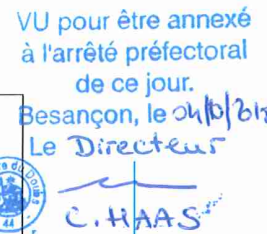 VU pour être annexé
à l'arrêté préfectoral
de ce jour.
Besançon, le 04/10/201
Le Directeur
C. HAAS
44